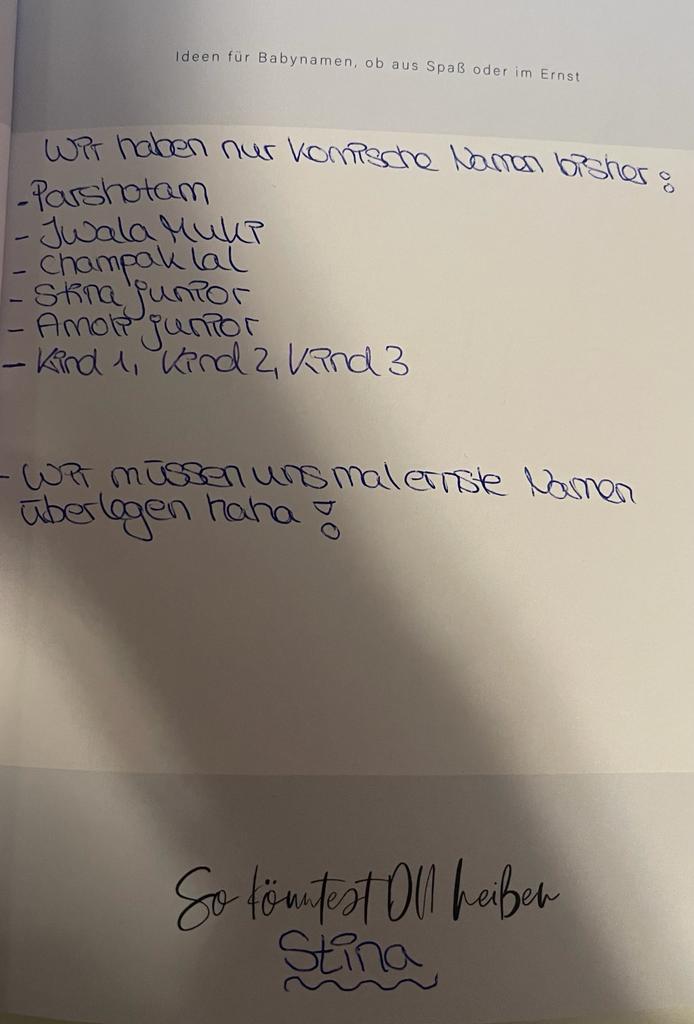 Ideen für Babynamen, ob aus Spaß oder im Ernst
Wir haben nur komische Namen bisher:
- Parshotam
- Jwala Muki
- Champak lal
- Stina junior
- junior
- Kind 1, Kind 2, Kind 3
- Wir müssen uns mal ernste Namen
überlegen haha!
So könntest DU heißen
Stina